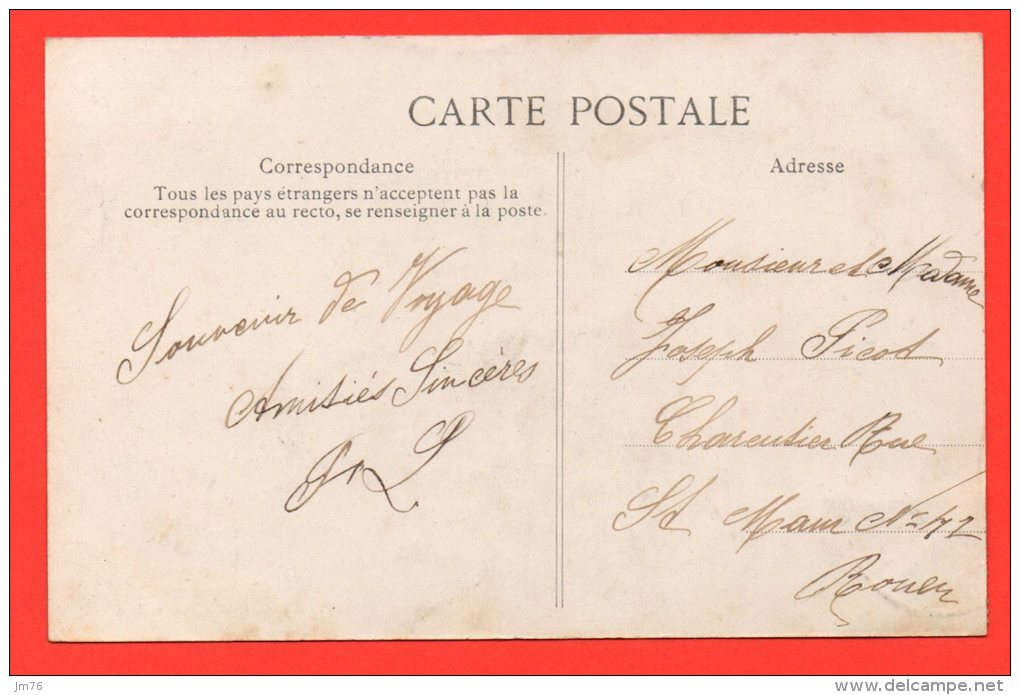 CARTE POSTALE
Correspondance
Tous les pays étrangers n'acceptent pas la
correspondance au recto, se renseigner à la poste.
Souvenir de Voyage
Amitiés Sincères
Adresse
Monsieur et Madame
Joseph Picot
Charcutier Rue
St Maur No
Rouen
jm76
www.delcampe.net